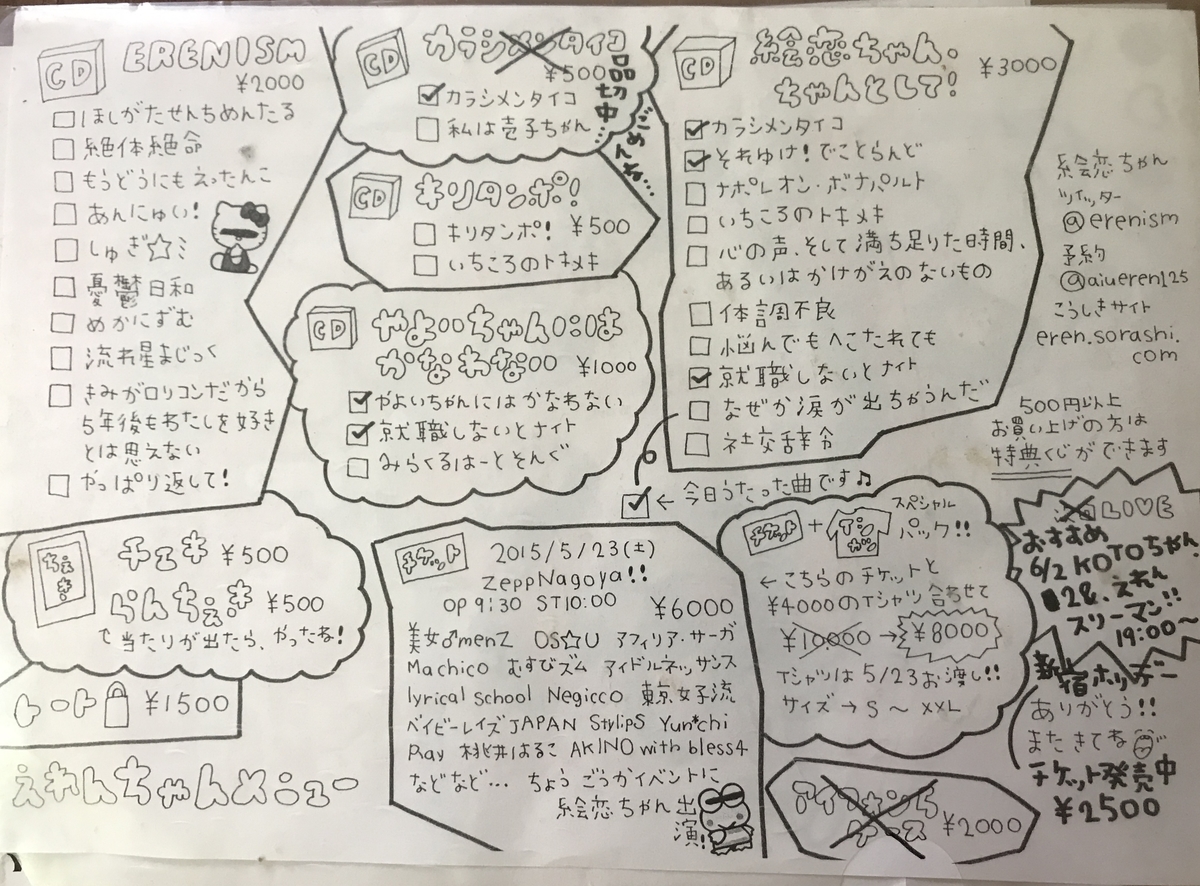 CD ERENISM
¥2000
ほしがたせんちめんたる
絶体絶命
もうどうにもえったんこ
あんにゅい!
しゅぎ☆ミ
憂鬱日和
めかにずむ
流れ星まじっく
きみがロリコンだから
5年後もわたしを好き
とは思えない
やっぱり返して!
CD カラシメンタイコ
¥500
品切中…ごめんね…
☑カラシメンタイコ
私は壱子ちゃん
CD キリタンポ!
キリタンポ! ¥500
いちころのトキメキ
CD やよいちゃんには
かなわない ¥1000
☑やよいちゃんにはかなわない
☑就職しないとナイト
みらくるはーとそんぐ
CD 絵恋ちゃん、
ちゃんとして! ¥3000
☑カラシメンタイコ
☑それゆけ!でことらんど
ナポレオン・ボナパルト
いちころのトキメキ
心の声、そして満ち足りた時間、
あるいはかけがえのないもの
体調不良
悩んでもへこたれても
☑就職しないとナイト
なぜか涙が出ちゃうんだ
社交辞令
☑←今日うたった曲です♫
絵恋ちゃん
ツイッター
@erenism
予約
@aiueren125
こうしきサイト
eren.sorashi.
com
500円以上
お買い上げの方は
特典くじができます
ちぇき チェキ ¥500
らんちぇき ¥500
で当たりが出たら、やったね!
トート ¥1500
えれんちゃんメニュー
チケット 2015/5/23(土)
ZeppNagoya!!
OP 9:30 ST10:00 ¥6000
美女♂menZ OS☆U アフィリア・サーガ
Machico むすびズム アイドルネッサンス
lyrical school Negicco 東京女子流
ベイビーレイズJAPAN StylipS Yun*chi
Ray 桃井はるこ AKINO with bless4
などなど… ちょうごうかイベントに
絵恋ちゃん出
演!
チケット + Tシャツ スペシャル
パック!!
←こちらのチケットと
¥4000のTシャツ合わせて
¥10000→¥8000
Tシャツは5/23お渡し!!
サイズ→S〜XXL
アイフォン5
ケース ¥2000
次回LI♥E
おすすめ
6/2 KOTOちゃん
2&.えれん
スリーマン!!
19:00〜
新宿ホリデー
ありがとう!!
またきてね
チケット発売中
¥2500